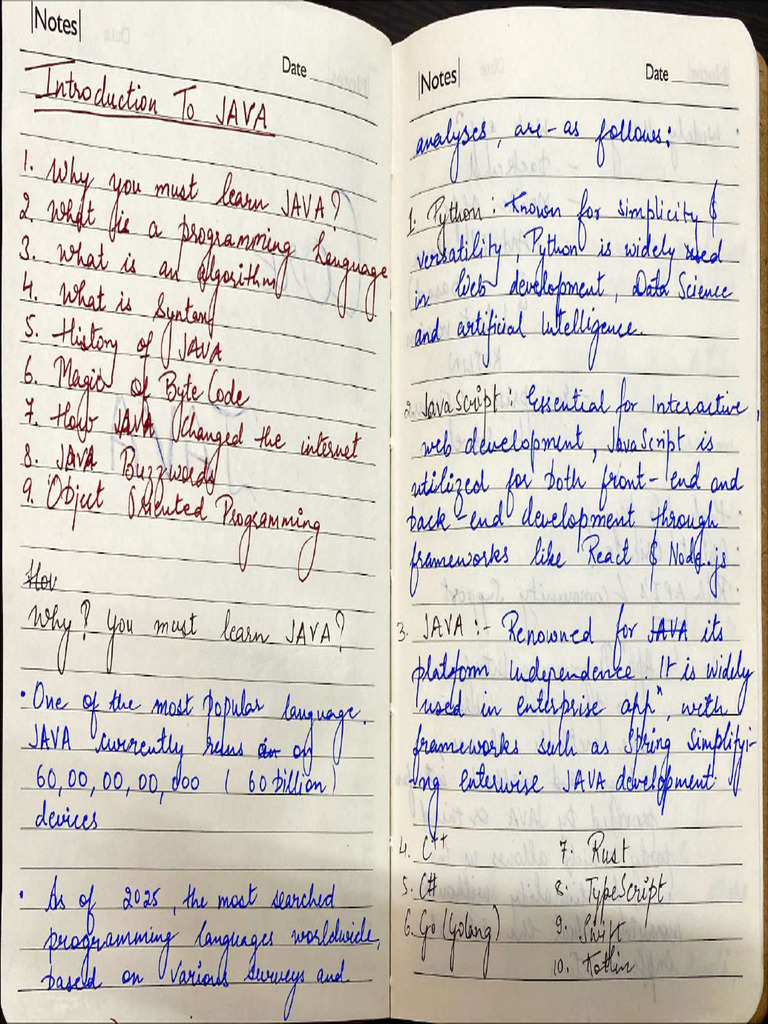 Notes
Date
Introduction To JAVA
1. Why you must learn JAVA?
2. What is a programming Language
3. What is an algorithm
4. What is Syntax
5. History of JAVA
6. Magic of Byte Code
7. How JAVA changed the internet
8. JAVA Buzzwords
9. Object Oriented Programming
How
Why? You must learn JAVA?
• One of the most popular language.
JAVA currently runs in of
60,00,00,00,000 (60 billion)
devices
• As of 2025, the most searched
programming languages worldwide,
based on various surveys and
Notes
Date
analyses, are as follows:
1. Python: Known for simplicity &
versatility, Python is widely used
in Web development, Data Science
and artificial Intelligence.
2. JavaScript: Essential for Interactive
web development, JavaScript is
utilized for both front-end and
back-end development through
frameworks like React & Node.js
3. JAVA :- Renowned for JAVA its
platform Independence. It is widely
used in enterprise appⁿ, with
frameworks such as Spring Simplifyi-
ng enterwise JAVA development.
4. C++ 7. Rust
5. C# 8. TypeScript
6. Go (Golang) 9. Swift
10. Kotlin